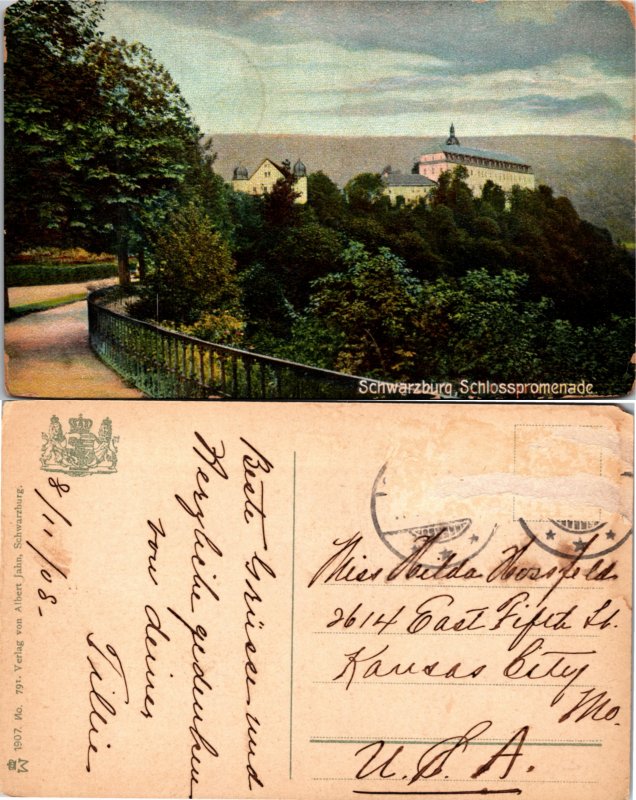 Schwarzburg, Schlosspromenade
8/11/08-
Beste Grüsse und
Herzlich gedenken
von deiner
Tillie
Miss Hilda
2614 East Fifth St.
Kansas City
Mo.
U.S.A.
1907. No. 791. Verlag von Albert Jahn, Schwarzburg.